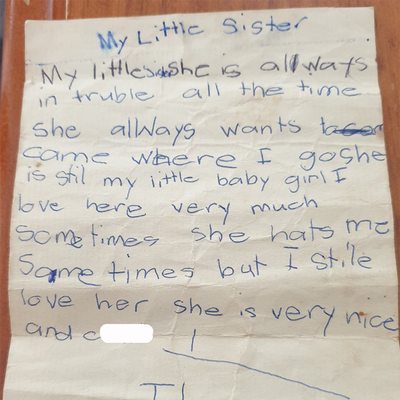 My Little Sister
My little she is allways
in truble all the time
she allways wants
came where I goshe
is stil my little baby girl I
love here very much
Sometimes she hats me
Some times but I stile
love her she is very nice
and